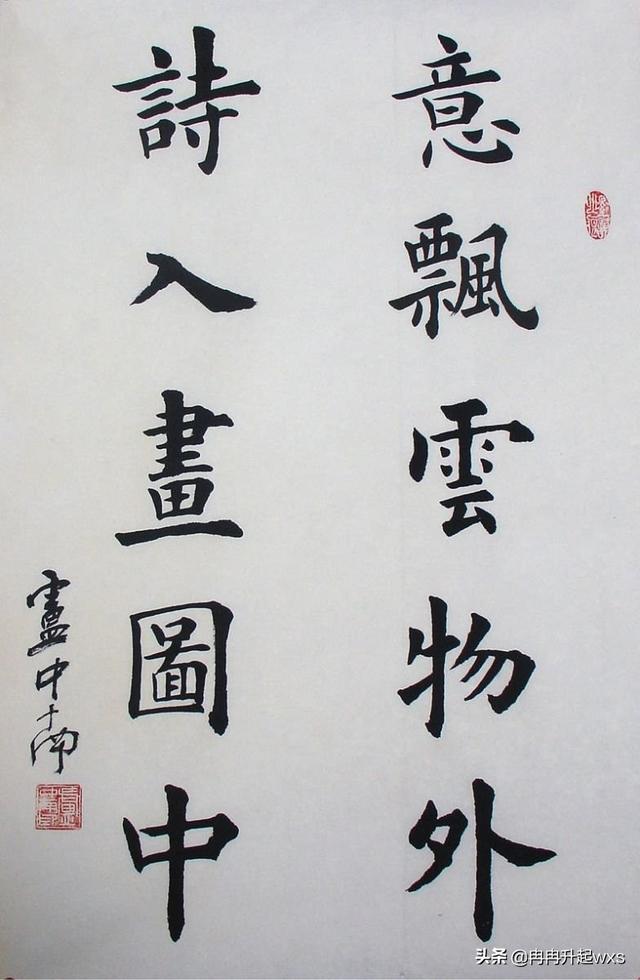 意飄雲物外
詩入畫圖中
盧中南
头条 @冉冉升起wxs